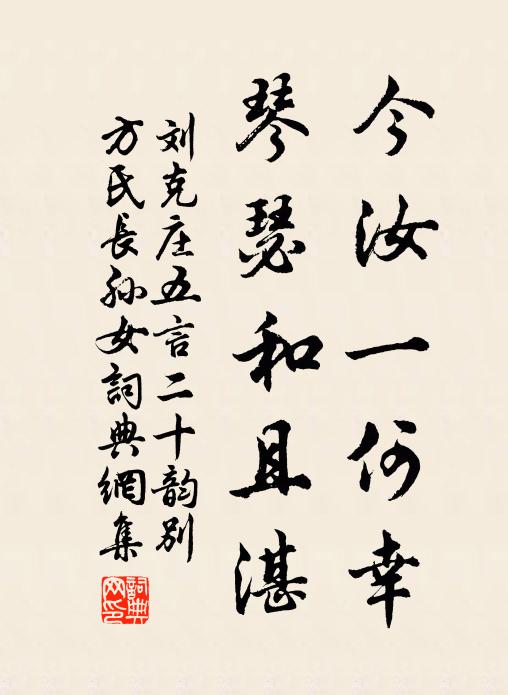 今汝一何幸
琴瑟和且湛
刘克庄五言二十韵别
方氏長孙女詞典網集
詞典網印